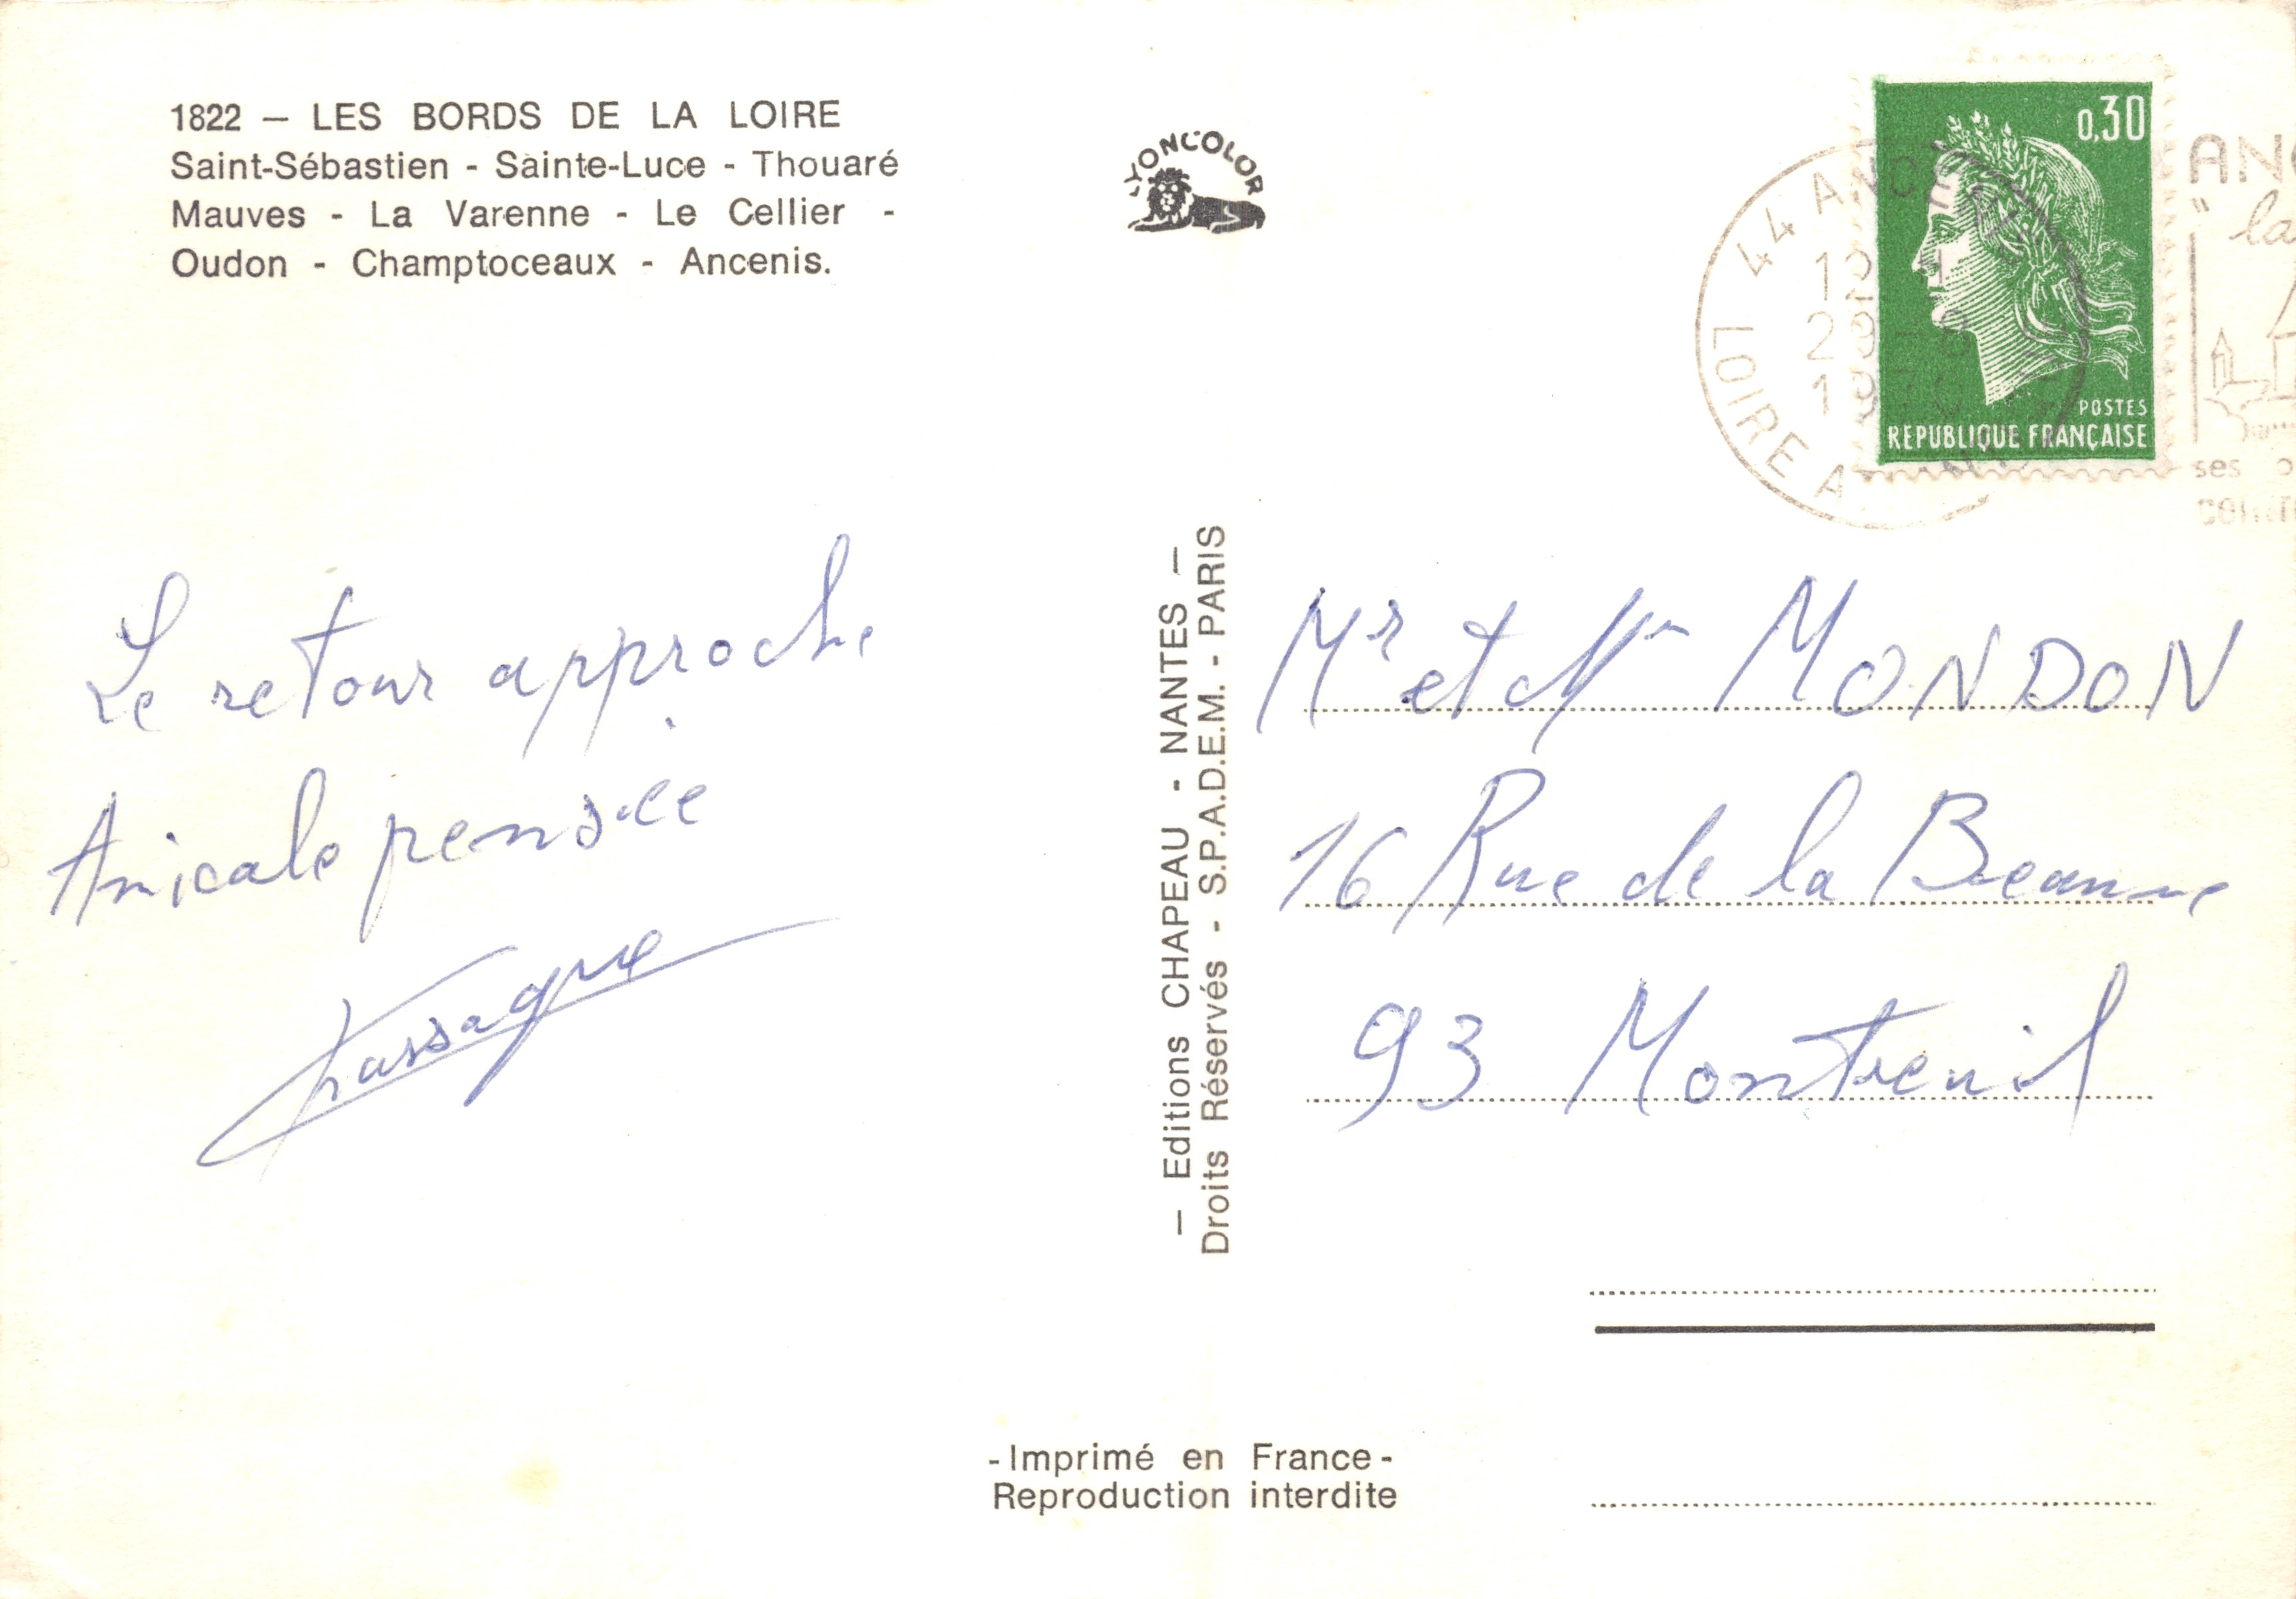 1822 — LES BORDS DE LA LOIRE
Saint-Sébastien - Sainte-Luce - Thouaré
Mauves - La Varenne - Le Cellier -
Oudon - Champtoceaux - Ancenis.
LYONCOLOR
0,30
POSTES
REPUBLIQUE FRANÇAISE
44 ANCENIS
LOIRE A
1970
Le retour approche
Amicale pensée
— Editions CHAPEAU - NANTES —
Droits Réservés - S.P.A.D.E.M. - PARIS
Mr et Mm MONDON
16 Rue de la Beaune
93 Montreuil
-Imprimé en France-
Reproduction interdite